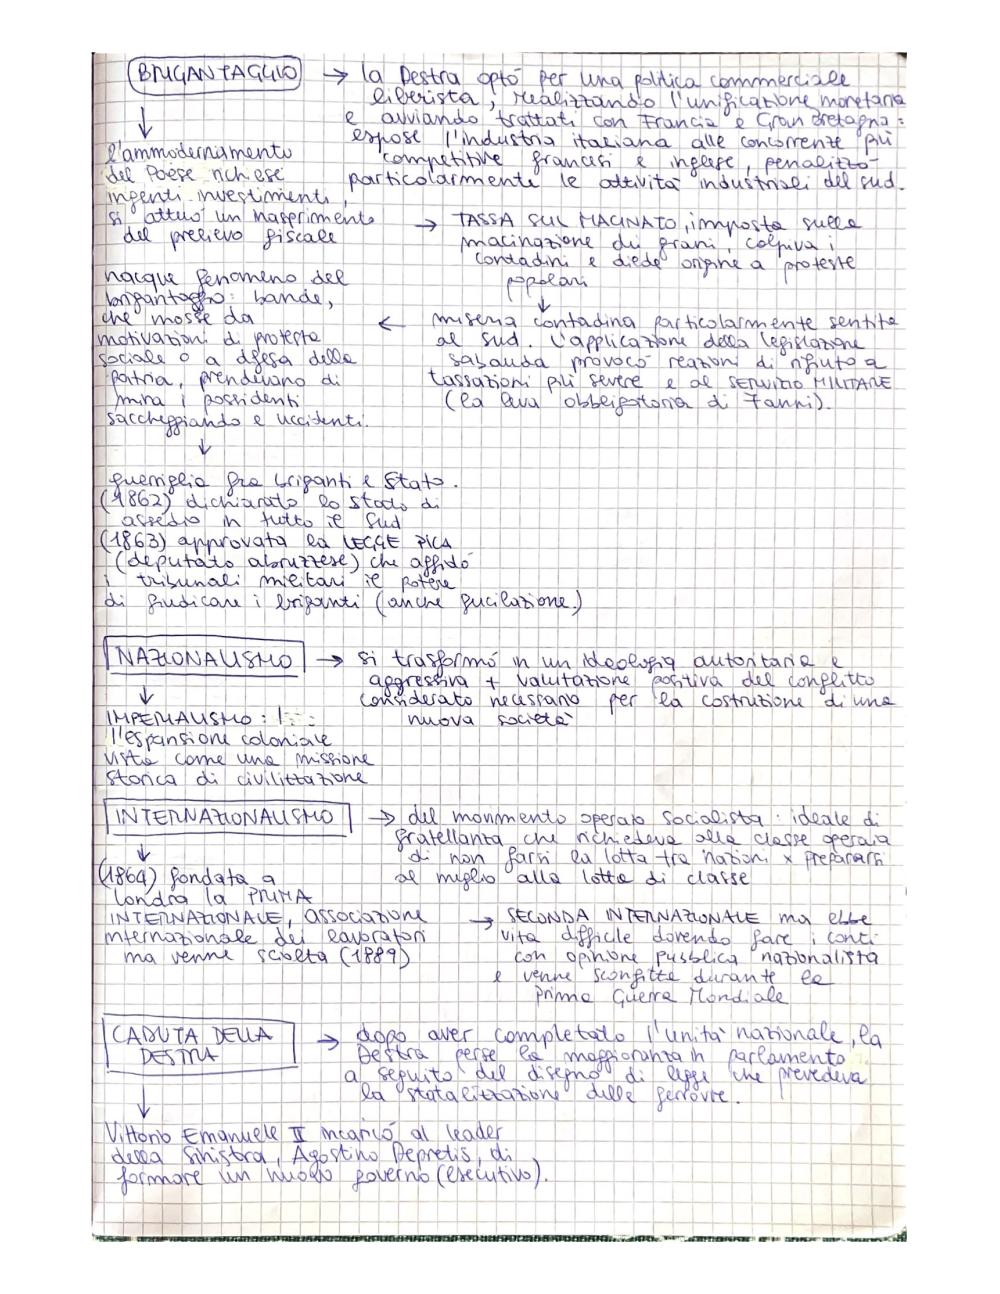 BRIGANTAGGIO → la Destra optò per una politica commerciale
liberista, realizzando l'unificazione monetaria
e avviando trattati con Francia e Gran Bretagna:
espose l'industria italiana alle concorrente più
competitive francesi e inglese, penalizzò
particolarmente le attività industriali del sud.
↓
l'ammodernamento
del Paese richiese
ingenti investimenti,
si attuò un inasprimento
del prelievo fiscale
→ TASSA SUL MACINATO, imposta sulla
macinazione dei grani, colpiva i
contadini e diede origine a proteste
popolari
↓
miseria contadina particolarmente sentita
al sud. L'applicazione della legislazione
sabauda provocò reazioni di rifiuto a
tassazioni più severe e al SERVIZIO MILITARE
(la leva obbligatoria di 7 anni).
←
nacque fenomeno del
brigantaggio: bande,
che mosse da
motivazioni di protesta
sociale o a difesa della
patria, prendevano di
mira i possidenti
saccheggiando e uccidenti.
↓
guerriglia fra briganti e Stato.
(1862) dichiarato lo stato di
assedio in tutto il Sud
(1863) approvata la LEGGE PICA
(deputato abruzzese) che affidò
i tribunali militari il potere
di giudicare i briganti (anche fucilazione)
NAZIONALISMO → si trasformò in un ideologia autoritaria e
aggressiva + valutazione positiva del conflitto
considerato necessario per la costruzione di una
nuova società
↓
IMPERIALISMO:
l'espansione coloniale
vista come una missione
storica di civilizzazione
INTERNAZIONALISMO → del movimento operaio socialista: ideale di
fratellanza che richiedeva alla classe operaia
di non farsi la lotta tra nazioni x prepararsi
al meglio alla lotta di classe
↓
(1864) fondata a
Londra la PRIMA
INTERNAZIONALE, associazione
internazionale dei lavoratori
ma venne sciolta (1889)
→ SECONDA INTERNAZIONALE ma ebbe
vita difficile dovendo fare i conti
con opinione pubblica nazionalista
e venne sconfitta durante la
Prima Guerra Mondiale
CADUTA DELLA
DESTRA
→ dopo aver completato l'unità nazionale, la
Destra perse la maggioranza in parlamento
a seguito del disegno di legge che prevedeva
la statalizzazione delle ferrovie.
↓
Vittorio Emanuele II incaricò al leader
della Sinistra, Agostino Depretis, di
formare un nuovo governo (esecutivo).